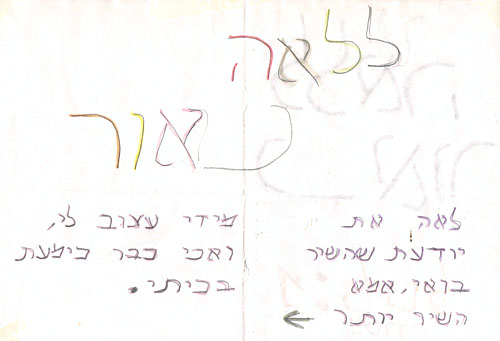 ללאה
לאה את
יודעת שהשיר
בואי, אמא
השיר יותר ←
מידי עצוב לי,
ואני כבר כימעת
בכיתי.